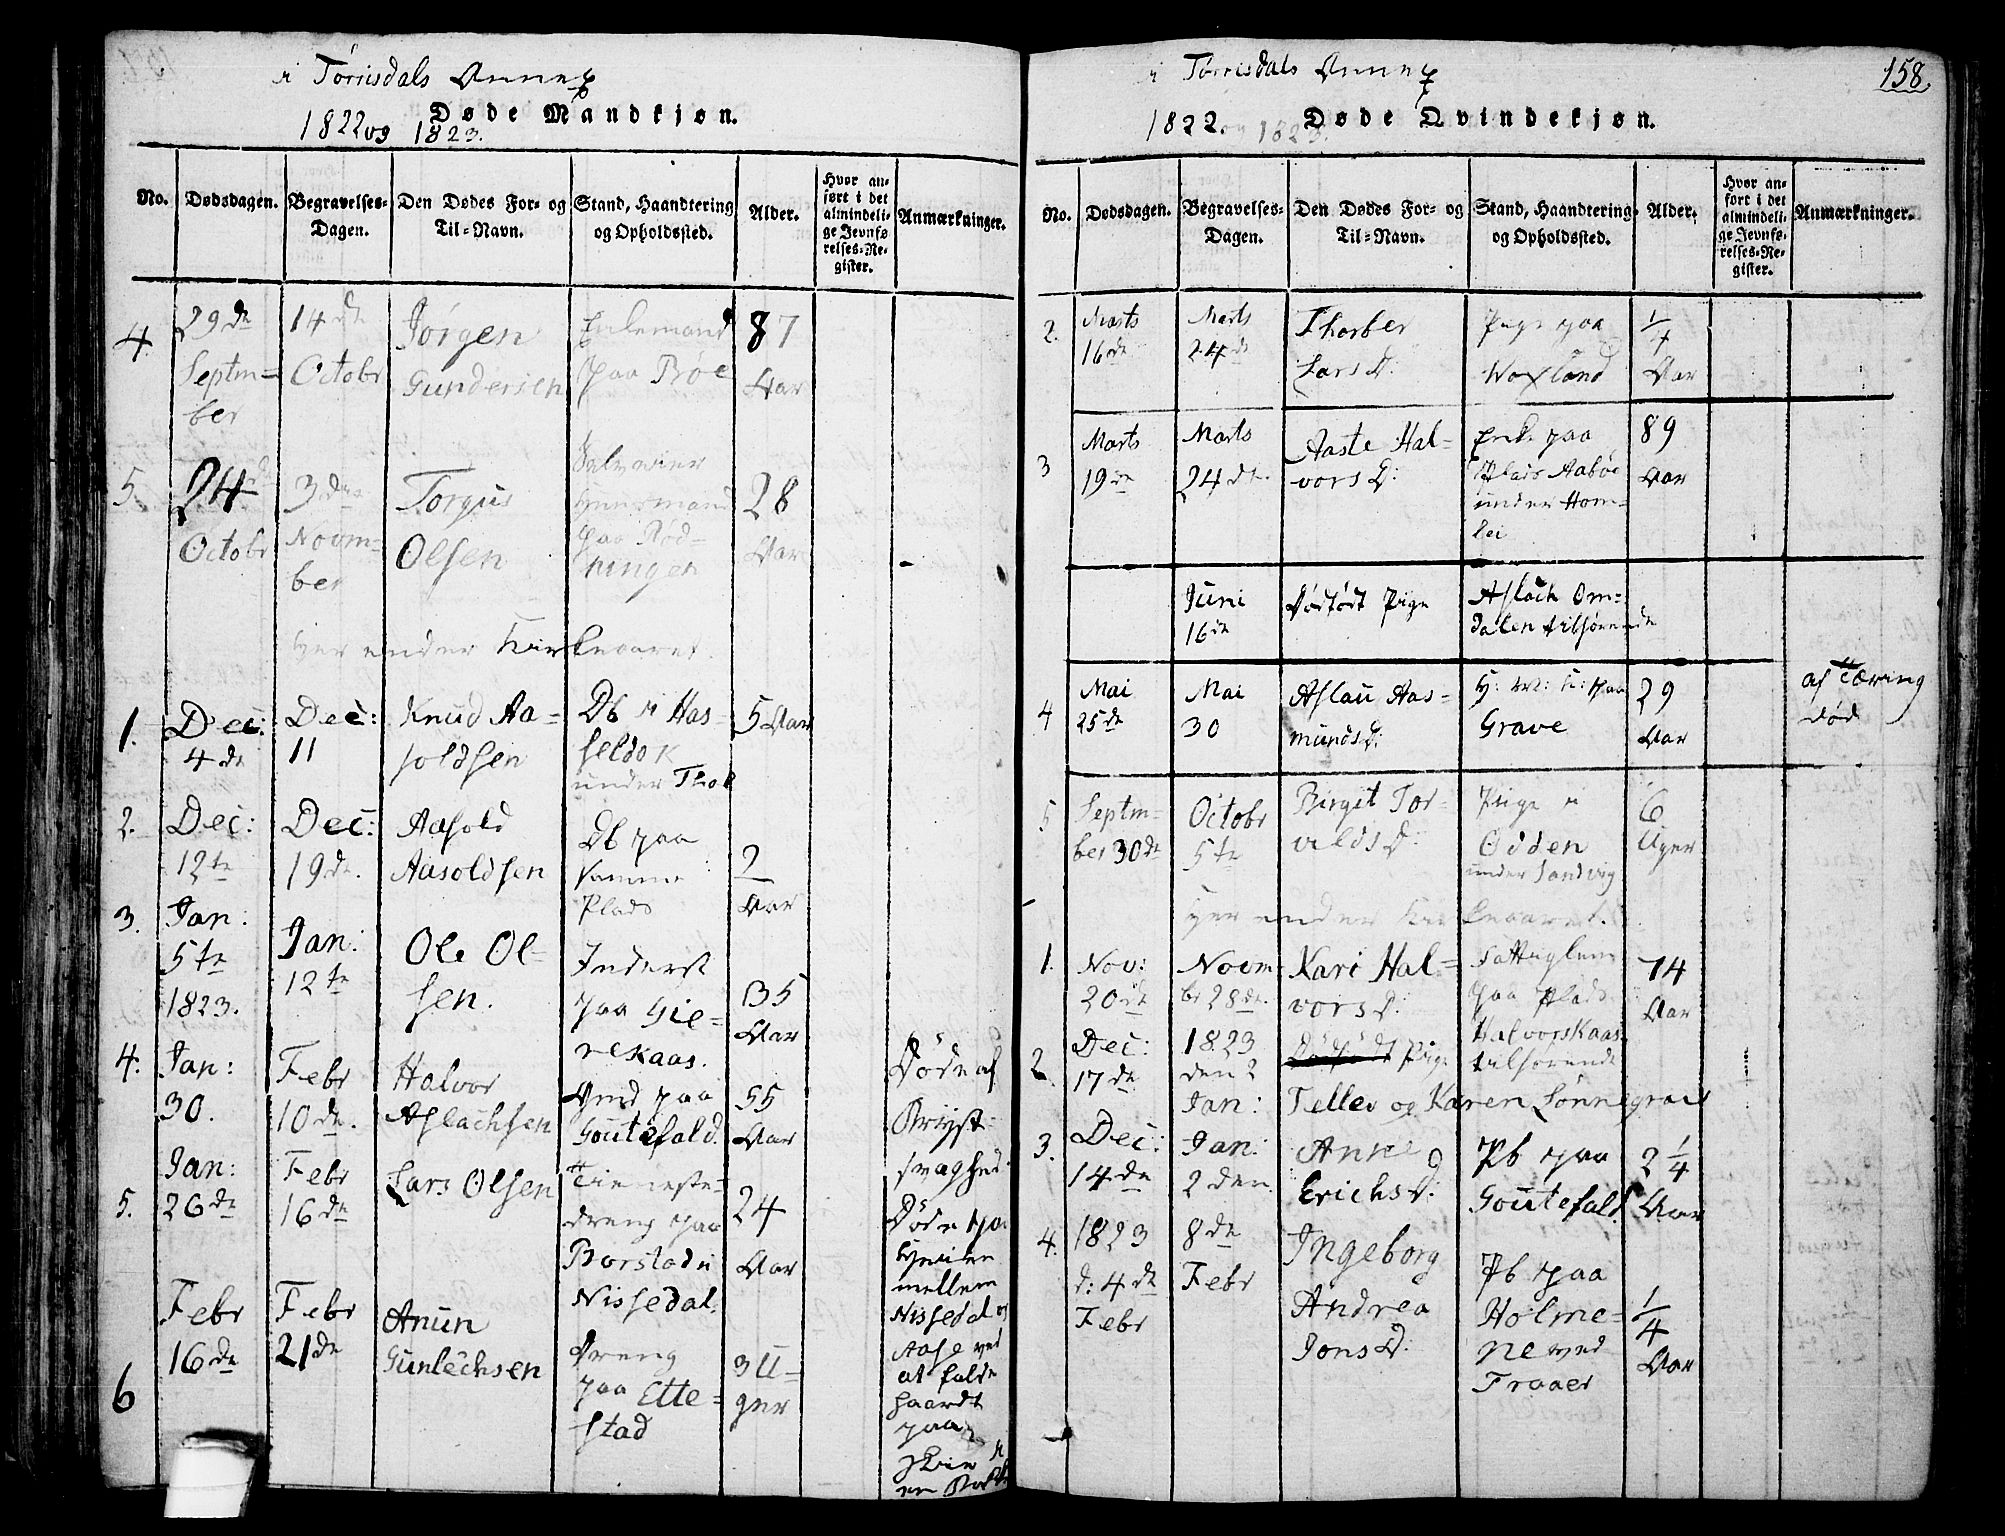 i Tørrisdals Annex
1822 og 1823.
Døde Mandkjøn.
No.
Dødsdagen.
Begravelses-
Dagen.
Den Dødes For- og
Til-Navn.
Stand, Haandtering
og Opholdssted.
Alder.
Hvor an-
ført i det
almindeli-
ge Jevnfø
relses-Re-
gister.
Anmærkninger.
4.
29de
Septm-
ber
14de
Octobr
Jørgen
Gundersen
Enkemand
paa Bøe
87
Aar
5.
24de
Octobr
3die
Novm-
ber
Torgus
Olsen
Selveier
paa Rød-
ningen
28
Aar
Her ender Kirkeaaret.
1.
Dec:
4de
Dec:
11
Knud Aa-
soldsen
Db i Has-
seldok
under Thol
5 Aar
2.
Dec:
12te
Dec:
19de.
Aasold
Aasoldsen
Db paa
samme
Plads
2
Aar
3.
Jan:
5te
1823.
Jan:
12te
Ole Ol-
sen.
Inderst
paa Gie-
rekaas.
35
Aar
4.
Jan:
30.
Febr
10de.
Halvor
Aslachsen
paa
Goutefald.
55
Aar
Døde af
Bryst-
svaghed.
5.
Jan:
26de
Febr
16de
Lars Olsen
Tieneste-
dreng paa
Borstad i
Nissedal.
24
Aar
Døde paa
Heien
mellem
Nissedal og
Aase ved
at falde
haardt
paa
6
Febr
16de
Febr
21de
Anun
Gunlechsen
Dreng
paa Ette-
stad
3 U-
ger
i Tørrisdals Annex
158.
1822. og 1823.
Døde Qvindekjøn.
No.
Dødsdagen.
Begravelses-
Dagen.
Den Dødes For- og
Til-Navn.
Stand, Haandtering
og Opholdssted.
Alder.
Hvor an-
ført i det
almindeli-
ge Jevnfø-
relses-Re-
gister.
Anmærkninger.
2.
Marts
16de
Marts
24de
Thorber
Lars D.
Pige paa
Woxland
Aar
3
Marts
19de
Marts
24de.
Aaste Hal-
vors D:
Enke paa
Plads Aabøe
under Hom-
lei
89
Aar
Juni
16de
Dødfødt Pige
Aslach Om-
dalen tilhørende
4
Mai
25de
Mai
30
Aslau Aas-
munds D:
paa
Grave
29
Aar
af Tæring
død
5
Septm-
ber 30de
Octobr
5te
Birgit Tor-
valds D:
Pige i
Odden
under Sandvig
6
Uger
Her ender Kirkeaaret.
1.
Nov:
20de
Novm-
br 28de.
Kari Hal-
vors D:
paa Plads
Halvorskaas
74
Aar
2.
Dec:
17de
1823
den 2
Jan:
Dødfødt Pige
tilhørende
Tellev og Karen Sønnegraas
3.
Dec:
14de
Jan:
2den.
Anne
Erichs D:
Pb paa
Goutefald.
2 1/4
Aar
4.
1823
d: 4de
Febr
8de
Febr
Ingeborg
Andrea
Jons D.
Pb paa
Holme-
ne ved
Traaer
1/4
Aar